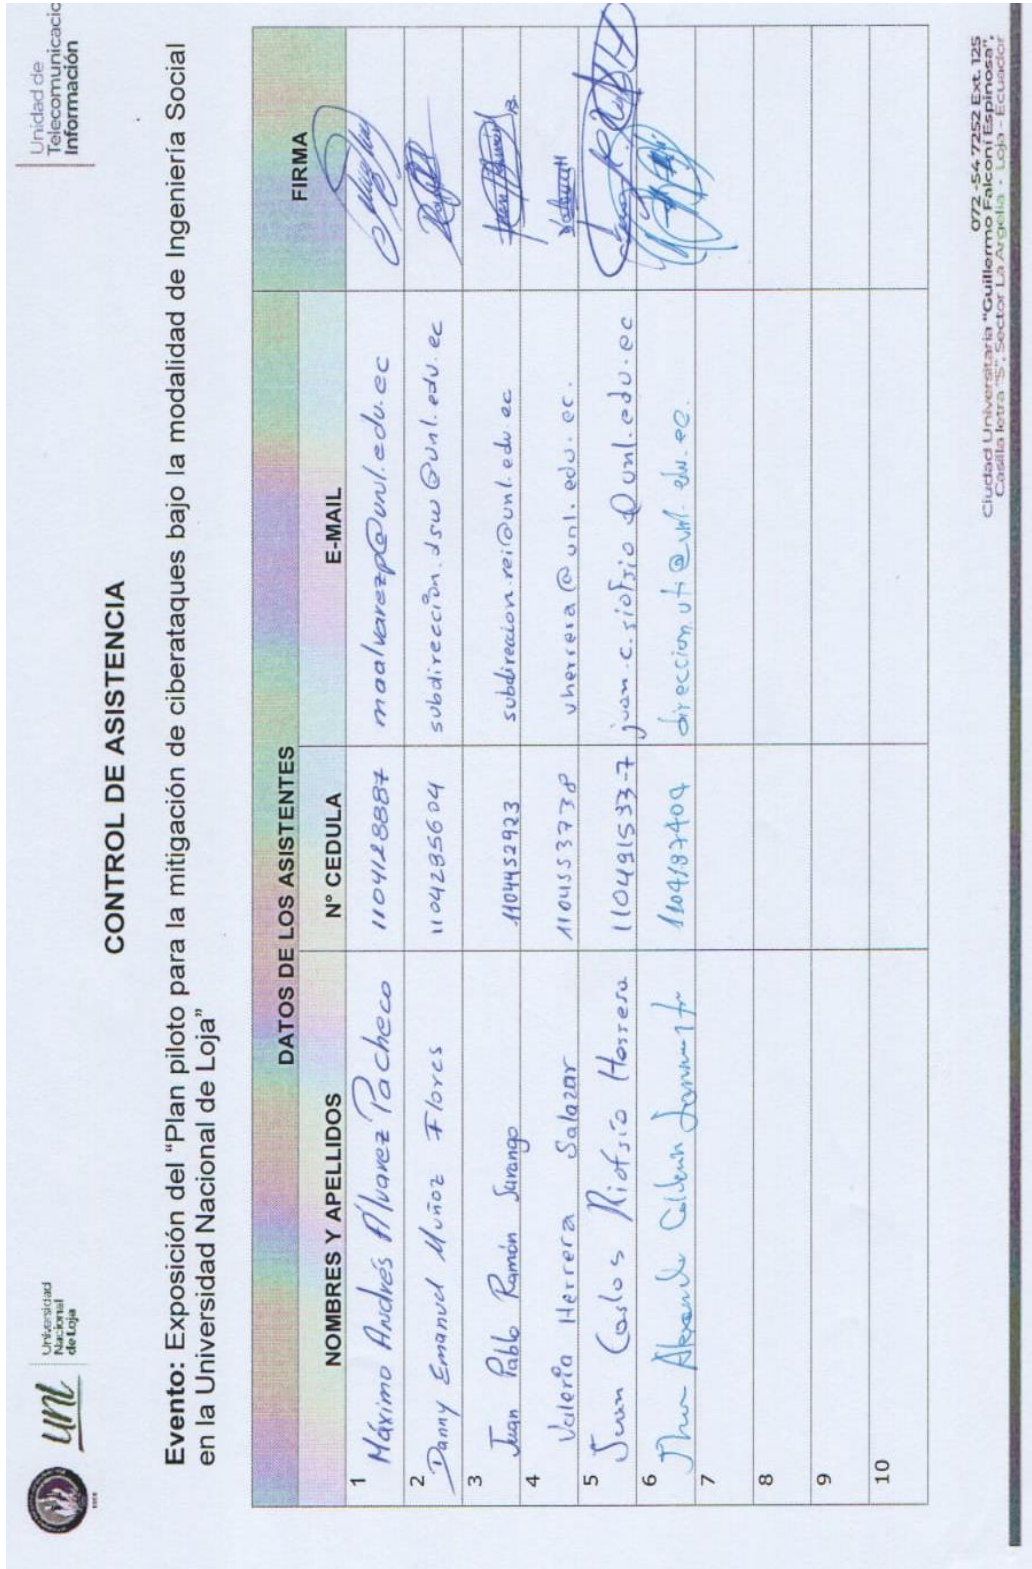 unl
Universidad
Nacional
de Loja
Unidad de
Telecomunicacio
Información
CONTROL DE ASISTENCIA
Evento: Exposición del “Plan piloto para la mitigación de ciberataques bajo la modalidad de Ingeniería Social
en la Universidad Nacional de Loja”
DATOS DE LOS ASISTENTES
NOMBRES Y APELLIDOS N° CEDULA E-MAIL FIRMA
1 Máximo Andrés Álvarez Pacheco 1104128887 maalvarezp@unl.edu.ec
2 Danny Emanuel Muñoz Flores 1104295604 subdireccion.dsw@unl.edu.ec
3 Juan Pablo Ramón Sarango 1104452923 subdireccion.rei@unl.edu.ec
4 Valeria Herrera Salazar 1104553738 vherrera@unl.edu.ec.
5 Juan Carlos Riofrío Herrera 110491533-7 juan.c.riofrio@unl.edu.ec
6 Jhon Alexander Calderón 1104187404 direccion.uti@unl.edu.ec.
7
8
9
10
072 -54 7252 Ext. 125
Ciudad Universitaria "Guillermo Falconí Espinosa",
Casilla letra "S", Sector La Argelia - Loja - Ecuador